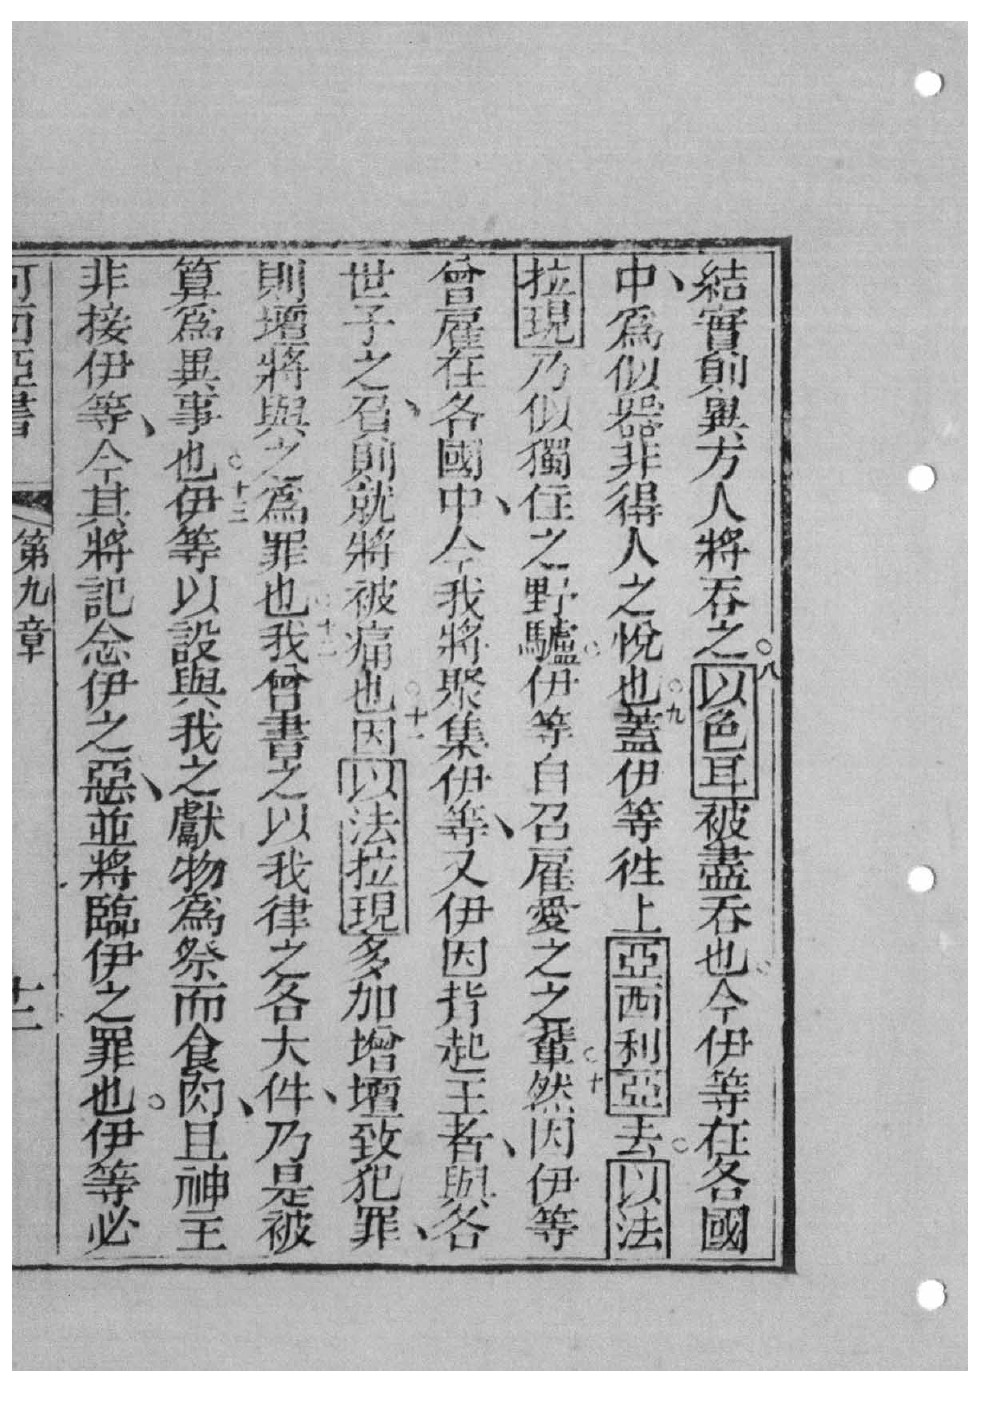 結實則異方人將吞之。八以色耳被盡吞也。今伊等在各國
中、爲似器非得人之悅也。九蓋伊等徃上亞西利亞去。以法
拉現乃似獨住之野驢。伊等自召雇愛之之輩。十然因伊等
曾雇在各國中、今我將聚集伊等、又伊因背起王者、與各
世子之召、則就將被痛也。十一因以法拉現多加增壇致犯罪、
則壇將與之爲罪也。十二我曾書之以我律之各大件、乃是被
算爲異事也。十三伊等以設與我之獻物爲祭而食肉、且神主
非接伊等、今其將記念伊之惡、並將臨伊之罪也。伊等必
何西亞書 第九章 十二